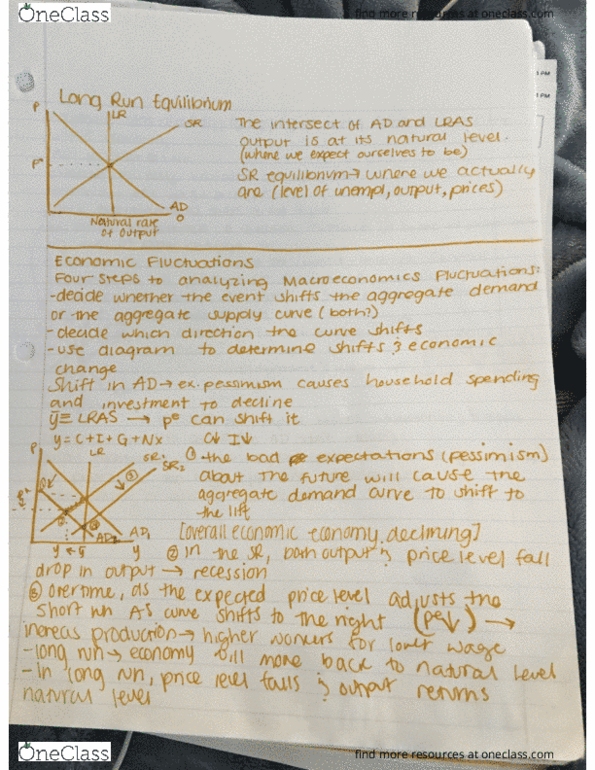 OneClass
find more resources at oneclass.com
Long Run Equilibrium
P
LR
SR
P*
AD
O
Natural rate
of output
The intersect of AD and LRAS
output is at its natural level.
(where we expect ourselves to be)
SR equilibrium → where we actually
are (level of unempl, output, prices)
Economic Fluctuations
Four steps to analyzing Macroeconomics Fluctuations:
-decide whether the event shifts the aggregate demand
or the aggregate supply curve (both?)
-decide which direction the curve shifts
-use diagram to determine shifts & economic
change
Shift in AD → ex. pessimism causes household spending
and investment to decline
y̅ ≡ LRAS → pe can shift it
y = C+I+G+Nx C↓ I↓
P
LR
SR1
SR2
AD1
AD2
y ← y̅ y
① the bad expectations (pessimism)
about the future will cause the
aggregate demand curve to shift to
the lift
[overall economic economy declining]
② in the SR, both output & price level fall
drop in output → recession
③ overtime, as the expected price level adjusts the
short run AS curve shifts to the right (pe↓) →
increas production → higher workers for lower wage
-long run → economy will move back to natural level
-in long run, price level falls & output returns
natural level
OneClass
find more resources at oneclass.com